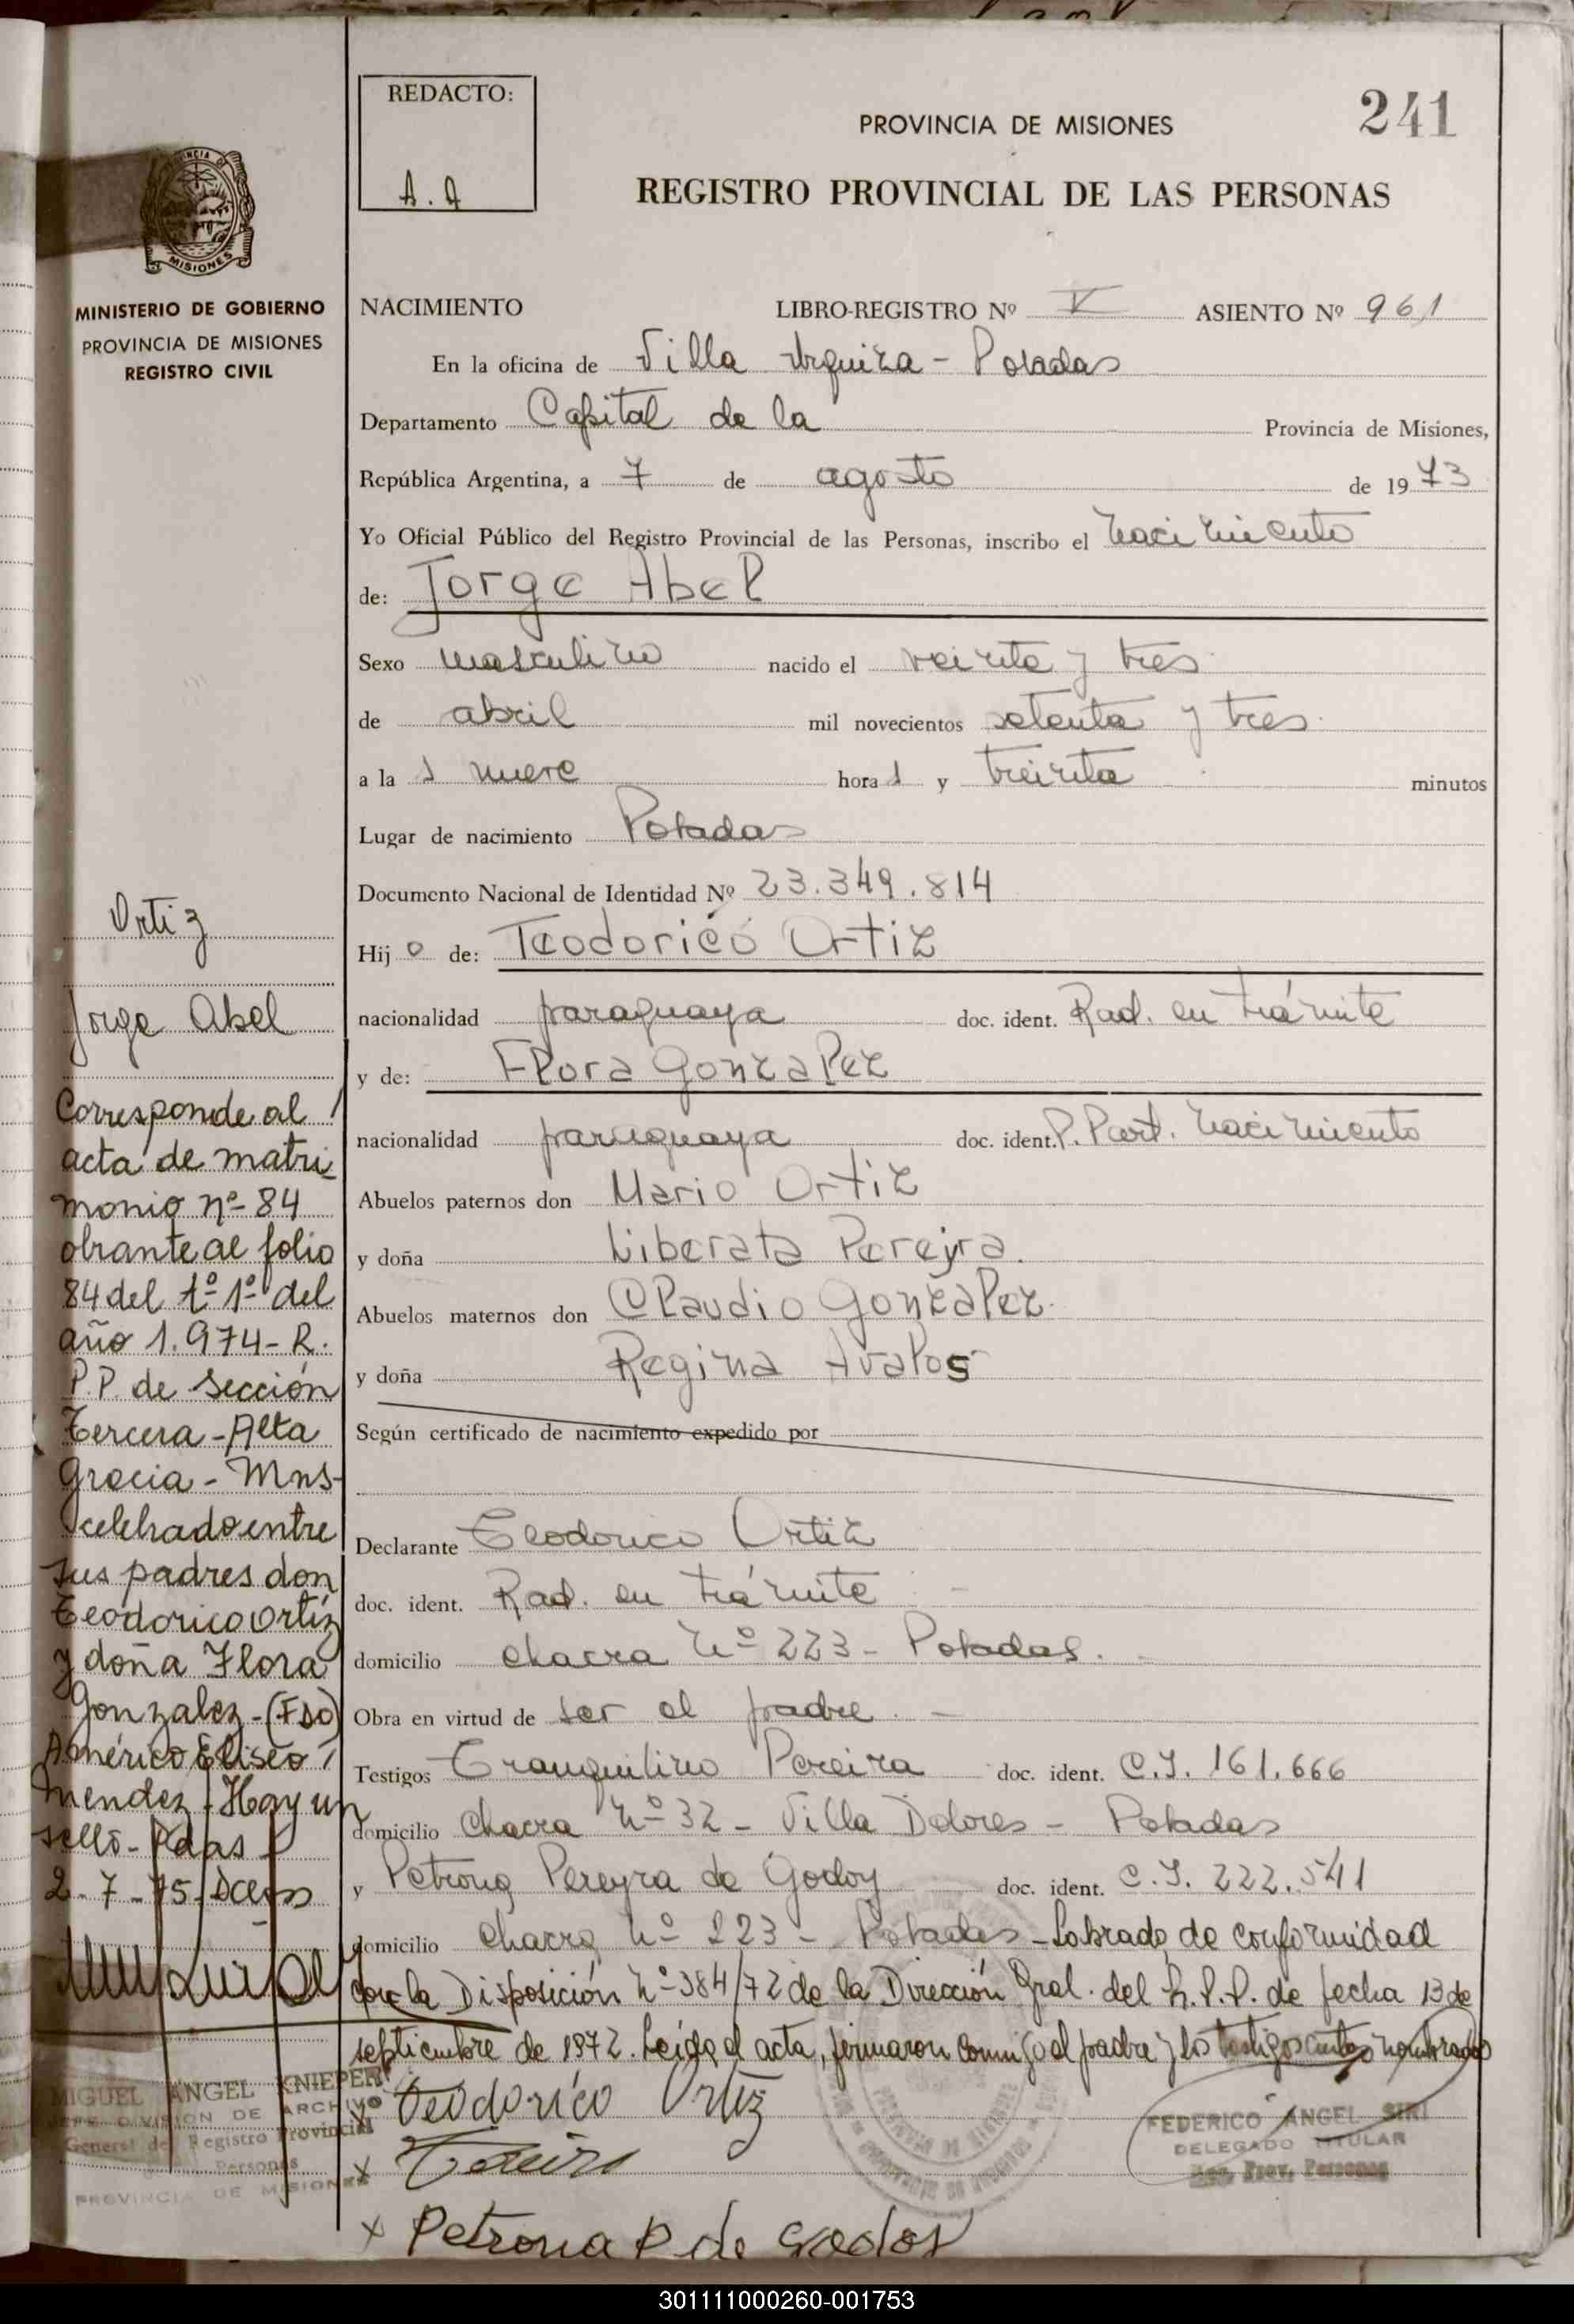 REDACTO:
A. A
PROVINCIA DE MISIONES
241
REGISTRO PROVINCIAL DE LAS PERSONAS
MISIONES
MINISTERIO DE GOBIERNO
PROVINCIA DE MISIONES
REGISTRO CIVIL
NACIMIENTO LIBRO-REGISTRO Nº V ASIENTO Nº 961
En la oficina de Villa Urquiza - Posadas
Departamento Capital de la Provincia de Misiones,
República Argentina, a 7 de agosto de 1973
Yo Oficial Público del Registro Provincial de las Personas, inscribo el nacimiento
de: Jorge Abel
Sexo masculino nacido el veinte y tres
de abril mil novecientos setenta y tres.
a la s nueve hora s y treinta minutos
Lugar de nacimiento Posadas
Documento Nacional de Identidad Nº 23.349.814
Hij o de: Teodorico Ortiz
nacionalidad paraguaya doc. ident. Rad. en trámite
y de: Flora Gonzalez
nacionalidad paraguaya doc. ident. P. Part. nacimiento
Abuelos paternos don Mario Ortiz
y doña Liberata Pereyra.
Abuelos maternos don Claudio Gonzalez.
y doña Regina Avalos
Según certificado de nacimiento expedido por
Declarante Teodorico Ortiz
doc. ident. Rad. en trámite -
domicilio chacra nº 223 - Posadas. -
Obra en virtud de ser el padre. -
Testigos Tranquilino Pereira doc. ident. C.I. 161.666
domicilio Chacra nº 32 - Villa Dolores - Posadas
y Petrona Pereyra de Godoy doc. ident. C.I. 222.541
domicilio chacra nº 223 - Posadas - Labrado de conformidad
con la Disposición nº 384/72 de la Dirección Gral. del R.P.P. de fecha 13 de
septiembre de 1972. Leída el acta, firmaron conmigo el padre y los testigos nombrados
x Teodorico Ortiz
x
x Petrona P de Godoy
FEDERICO ANGEL SIRI
DELEGADO TITULAR
Reg. Prov. Personas
Ortiz
Jorge Abel
Corresponde al
acta de matri
monio nº 84
obrante al folio
84 del tº 1º del
año 1.974 - R.
P.P. de Sección
Tercera - Alta
Gracia - Mns-
celebrado entre
sus padres don
Teodorico Ortíz
y doña Flora
Gonzalez - (Fdo)
Américo Eliseo
Mendez - Hay un
sello - Pdas
2-7-75
MIGUEL ANGEL KNIEPER
JEFE DIVISION DE ARCHIVO
General del Registro Provincial
Personas
PROVINCIA DE MISIONES
301111000260-001753